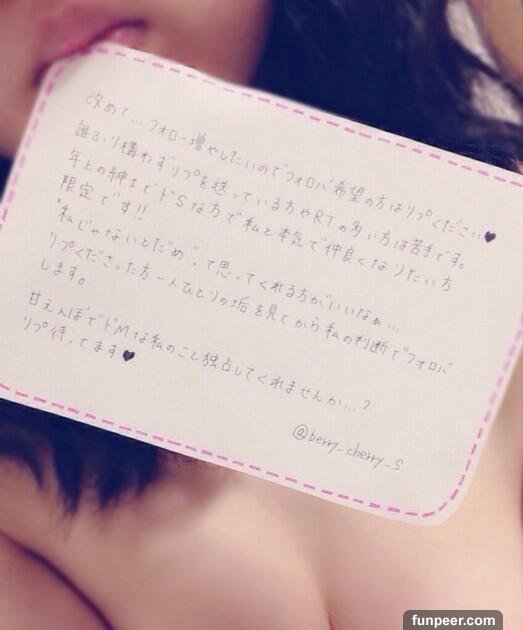 改めて…フォロー増やしたいのでフォロバ希望の方はリプください♥
誰ふり構わずリプを送っている方やRTの多い方は苦手です。
年上の紳士でドSな方で私と本気で仲良くなりたい方
限定です!!
"私じゃないとだめ"って思ってくれる方がいいなぁ…
リプくださった方一人ひとりの垢を見てから私の判断でフォロバ
します。
甘えんぼでドMな私のこと独占してくれませんか…?
リプ待ってます♥
@berry_cherry_s
funpeer.com